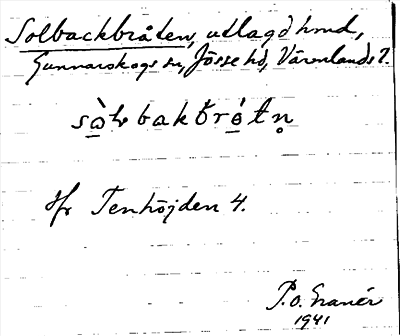 Solbackbråten, utlagd hmd,
Gunnarskogs sn, Jösse hd, Värmlands l.
Hr Tenhöjden 4.
P.O. Granér
1941